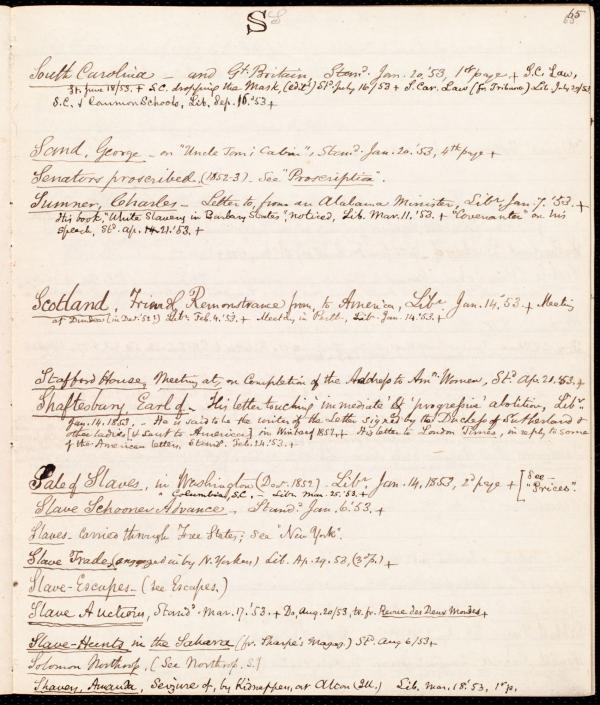 S
65
South Carolina – and Gt. Britain, Stand. Jan. 20.'53, 1st page + S.C. Law,
St. June 18/53. + S.C. dropping the Mask, (edit) Std July 16/53 + S. Car. Law (fr Tribune) Lib July 29/53
S.C. & Common Schools, Lib. Sep. 16.'53 +
Sand, George – on "Uncle Tom's Cabin", Stand. Jan. 20.'53, 4th page +
Senators proscribed, (1852-3) – See "Proscription".
Sumner, Charles – Letter to, from an Alabama Minister, Libr. Jan. 7.'53. +
His book, "White Slavery in Barbary States", noticed, Lib. Mar. 11.'53. + "Covenanter" on his
speech, Std. Ap. 21.'53. +
Scotland, Friendl Remonstrance from, to America, Libr. Jan. 14.'53. + Meeting
at Dundee (in Dec.'52?) Libr. Feb. 4.'53. + Meeting in Perth, Lib. Jan. 14.'53. +
Stafford House, Meeting at, on Completion of the Address to Amn. Women, Std. Ap. 21.'53. +
Shaftesbury, Earl of – His letter touching 'immediate' & 'progressive' abolition, Libr.
Jan. 14. 1853. – He is said to be the writer of the Letter signed by the Duchess of Sutherland &
other ladies [& sent to America] in Winter of 1852. + His letter to London Times, in reply to some
of the American letters, Stand. Feb. 24.'53. +
Sale of Slaves, in Washington (Dec. 1852) – Libr. Jan. 14, 1853, 2d page + [See – "Prices".
" Columbia, S.C. – Libr. Mar. 25.'53. +
Slave Schooner Advance – Stand. Jan. 6.'53. +
Slaves – carried through Free States; See "New York".
Slave Trade, (engaged in by N. Yorkers) Lib. Ap. 29. 53, (3d p.) +
Slave-Escapes – (see Escapes.)
Slave Auctions, Stand. Mar. 17.'53. + Do, Aug. 20/53, tr. fr. Revue des Deux Mondes +
Slave-Hunts in the Sahara (fr. Sharpe's Magaz.) Std. Aug 6/53 +
Solomon Northrop, (See Northrop. S.)
Amanda, Seizure of, by Kidnappers, at Alton (Ill.) Lib. Mar. 18.'53, 1st p.